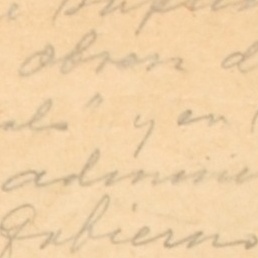 obren d
als" y en
adminis
Gobierno